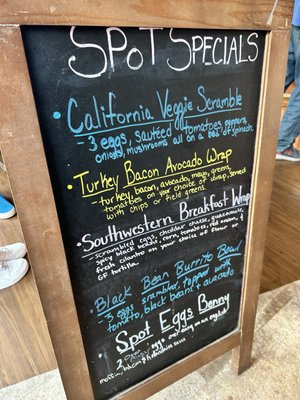 SPOT SPECIALS
California Veggie Scramble
- 3 eggs, sautéed tomatoes, peppers,
onions, mushrooms all on a bed of spinach
Turkey Bacon Avocado Wrap
- turkey, bacon, avocado, mayo, greens,
tomatoes on your choice of wrap, served
with chips or field greens.
Southwestern Breakfast Wrap
- scrambled eggs, cheddar cheese, guacamole,
spicy black beans, corn, tomatoes, red onion, &
fresh cilantro on your choice of flour or
GF tortilla.
Black Bean Burrito Bowl
3 eggs scrambled, topped with
tomato, black beans + avocado
Spot Eggs Benny
2 eggs over easy on an english
muffin, bacon & hollandaise sauce